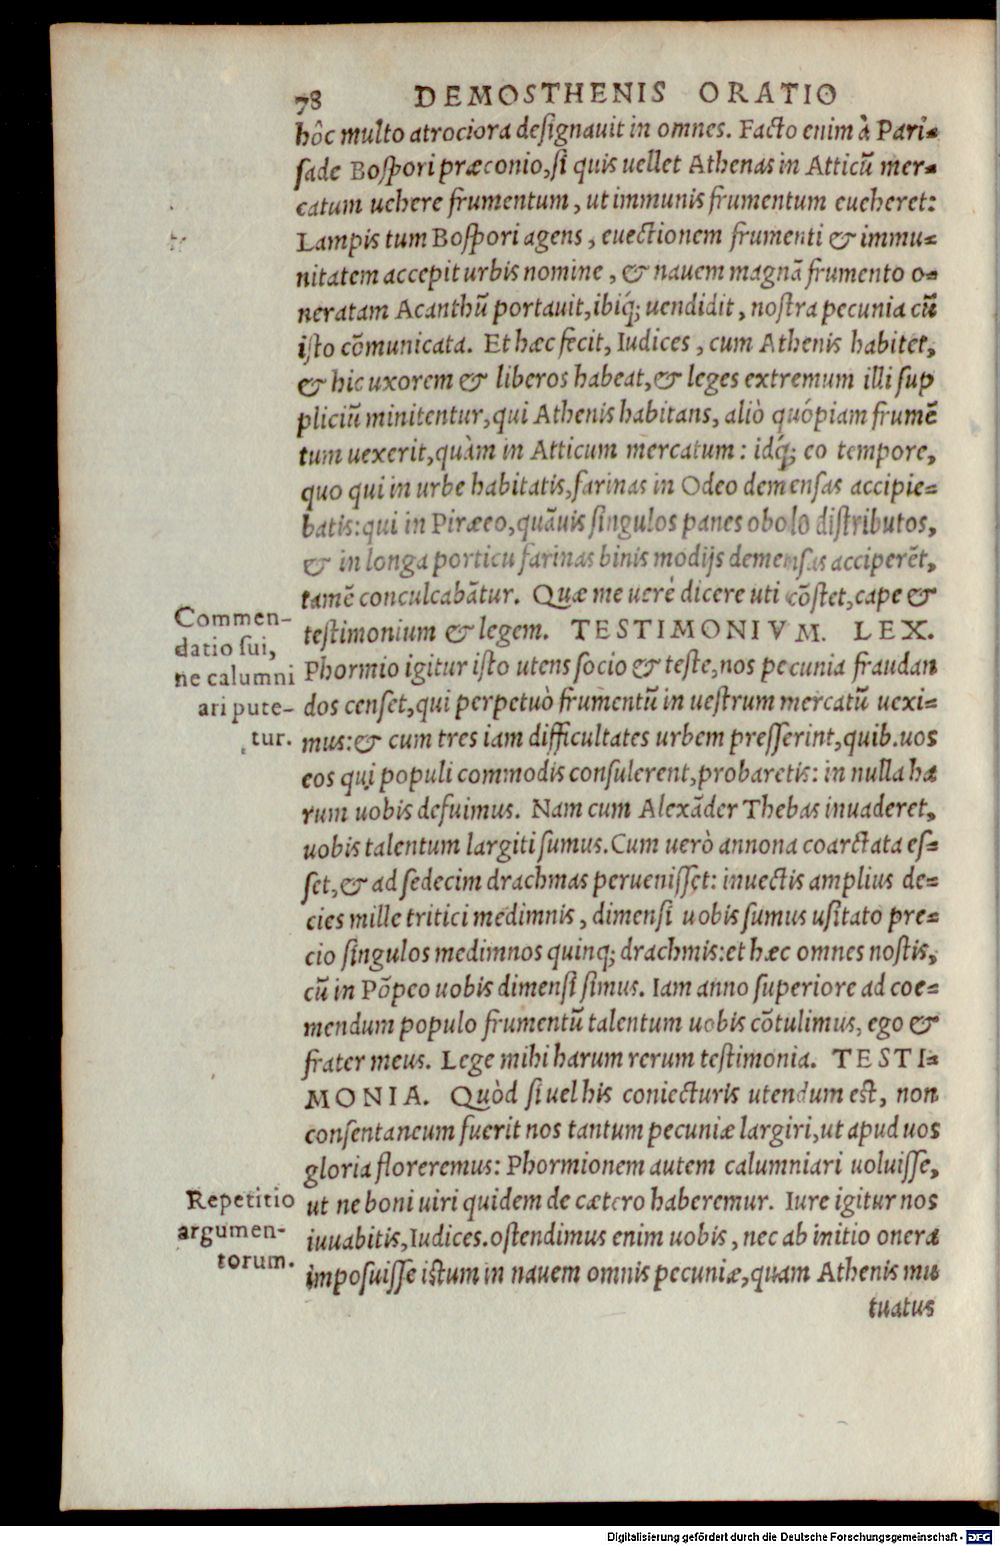 78 DEMOSTHENIS ORATIO
hôc multo atrociora deſignauit in omnes. Facto enim à Pari-
ſade Boſpori præconio, ſi quis uellet Athenas in Atticũ mer-
catum uehere frumentum, ut immunis frumentum eueheret:
Lampis tum Boſpori agens, euectionem frumenti & immu-
nitatem accepit urbis nomine, & nauem magnã frumento o-
neratam Acanthũ portauit, ibiq́; uendidit, noſtra pecunia cũ
iſto cõmunicata. Et hæc fecit, Iudices, cum Athenis habitet,
& hic uxorem & liberos habeat, & leges extremum illi ſup
pliciũ minitentur, qui Athenis habitans, aliò quópiam frumẽ
tum uexerit, quàm in Atticum mercatum: idq́; eo tempore,
quo qui in urbe habitatis, farinas in Odeo demenſas accipie-
batis: qui in Piræeo, quãuis ſingulos panes obolo diſtributos,
& in longa porticu farinas binis modijs demenſas acciperẽt,
tamẽ conculcabãtur. Quæ me uerè dicere uti cõſtet, cape &
teſtimonium & legem. TESTIMONIVM. LEX.
Phormio igitur iſto utens ſocio & teſte, nos pecunia fraudan
dos cenſet, qui perpetuò frumentũ in ueſtrum mercatũ uexi-
mus: & cum tres iam difficultates urbem preſſerint, quib. uos
eos qui populi commodis conſulerent, probaretis: in nulla ha
rum uobis defuimus. Nam cum Alexãder Thebas inuaderet,
uobis talentum largiti ſumus. Cum uerò annona coarctata eſ-
ſet, & ad ſedecim drachmas perueniſſet: inuectis amplius de-
cies mille tritici medimnis, dimenſi uobis ſumus uſitato pre-
cio ſingulos medimnos quinq; drachmis: et hæc omnes noſtis,
cũ in Põpeo uobis dimenſi ſimus. Iam anno ſuperiore ad coe-
mendum populo frumentũ talentum uobis cõtulimus, ego &
frater meus. Lege mihi harum rerum teſtimonia. TESTI-
MONIA. Quòd ſi uel his coniecturis utendum eſt, non
conſentaneum fuerit nos tantum pecuniæ largiri, ut apud uos
gloria floreremus: Phormionem autem calumniari uoluiſſe,
ut ne boni uiri quidem de cætero haberemur. Iure igitur nos
iuuabitis, Iudices. oſtendimus enim uobis, nec ab initio onera
impoſuiſſe iſtum in nauem omnis pecuniæ, quam Athenis mu
tuatus
Commen-
datio ſui,
ne calumni
ari pute-
tur.
Repetitio
argumen-
torum.
Digitalisierung gefördert durch die Deutsche Forschungsgemeinschaft - DFG